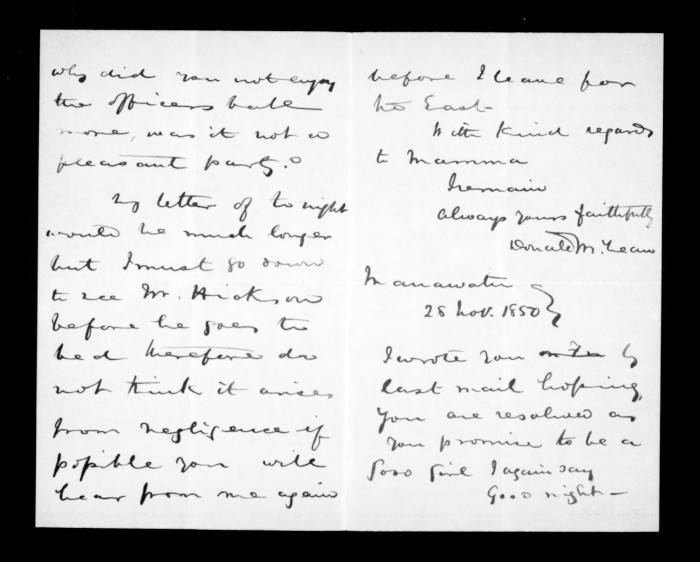 why did you not enjoy
the officers ball
more, was it not a
pleasant party?
My letter of to night
would be much longer
but I must go down
to see Mr. Hickson
before he goes to
bed therefore do
not think it arises
from negligence if
possible you will
hear from me again
before I leave for
the East
With kind regards
to Mamma
I remain
always yours faithfully
Donald McLean
Manawatu
28 Nov. 1850
I wrote you by
last mail hoping,
you are resolved as
you promise to be a
good girl I again say
Good night —